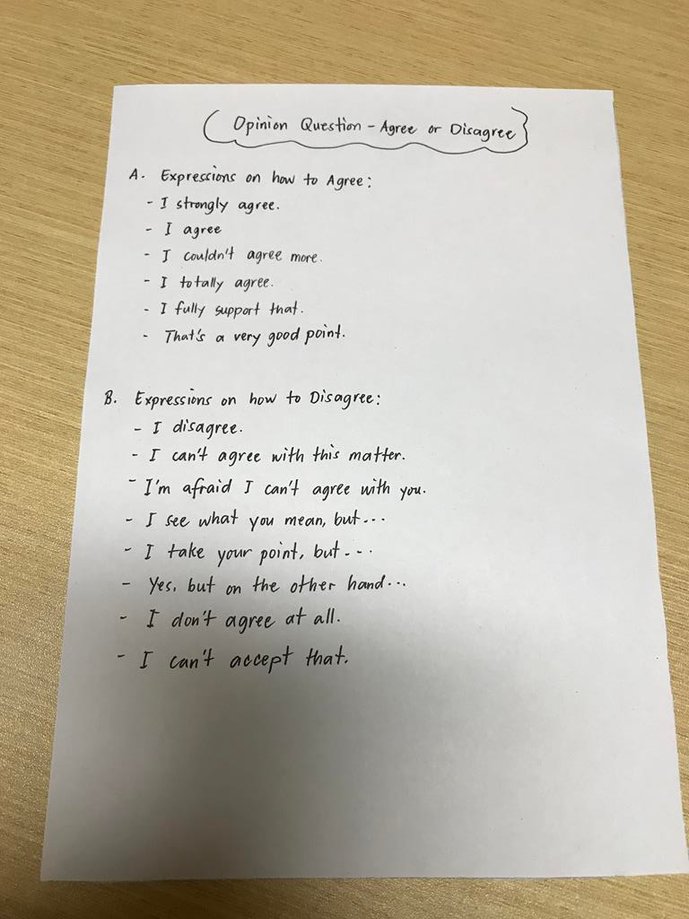 Opinion Question - Agree or Disagree
A. Expressions on how to Agree:
- I strongly agree.
- I agree
- I couldn't agree more.
- I totally agree.
- I fully support that.
- That's a very good point.
B. Expressions on how to Disagree:
- I disagree.
- I can't agree with this matter.
- I'm afraid I can't agree with you.
- I see what you mean, but...
- I take your point, but...
- Yes, but on the other hand...
- I don't agree at all.
- I can't accept that.